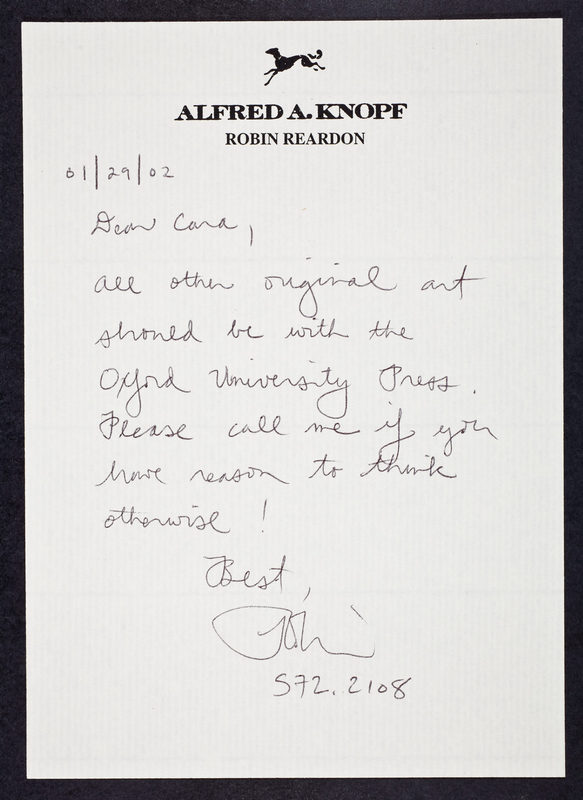 ALFRED A. KNOPF
ROBIN REARDON
01/29/02
Dear Cara,
all other original art
should be with the
Oxford University Press.
Please call me if you
have reason to think
otherwise!
Best,
Robin
572.2108